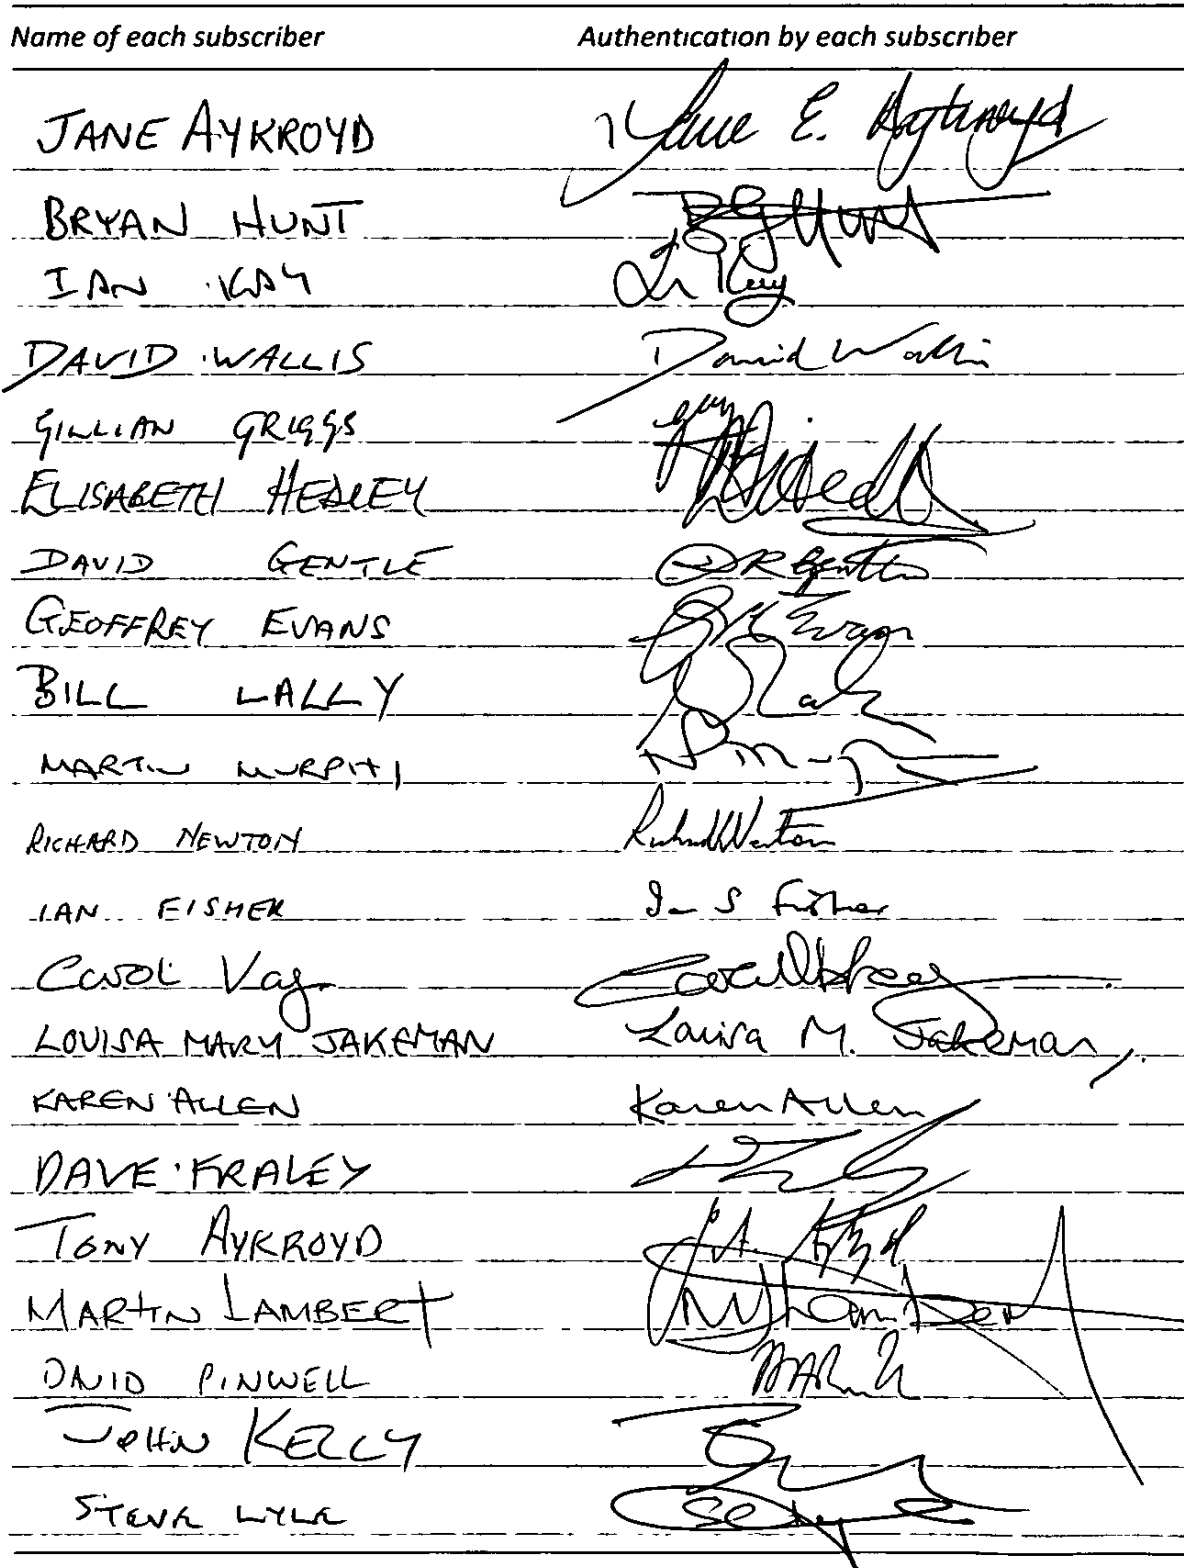 Name of each subscriber Authentication by each subscriber
JANE AYKROYD Jane E. Aykroyd
BRYAN HUNT BGJ Hunt
IAN KAY Ian Kay
DAVID WALLIS David Wallis
GILLIAN GRIGGS
ELISABETH HEDLEY
DAVID GENTLE DR Gentle
GEOFFREY EVANS G Evans
BILL LALLY Lally
MARTIN MURPHY
RICHARD NEWTON Richard Newton
IAN FISHER Ian S Fisher
Carol
LOUISA MARY JAKEMAN Louisa M. Jakeman
KAREN ALLEN Karen Allen
DAVE FRALEY
TONY AYKROYD
MARTIN LAMBERT Lambert
DAVID PINWELL
JOHN KELLY
STEVE LYLE